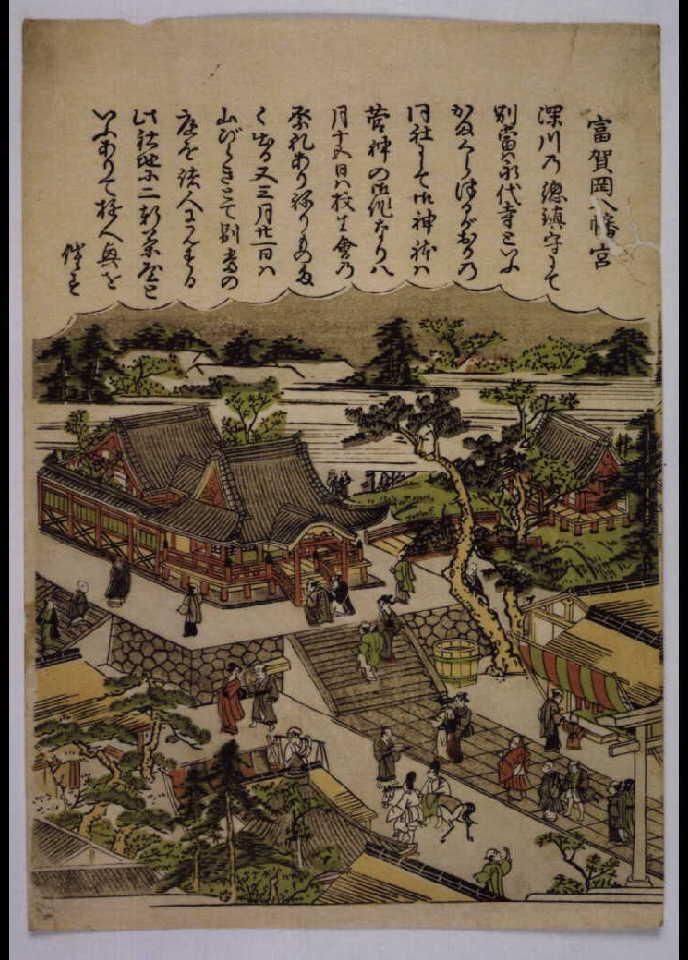 富賀岡八幡宮
深川乃總鎮守にて
別當ハ永代寺といふ
同社にて御神躰ハ
菅神の御作なり八
月十五日ハ放生會乃
祭礼あり
く出る又三月廿一日ハ
山びらきとて別當の
庭を諸人に見する
此社地に二軒茶屋と
いふありて遊人興を
催す